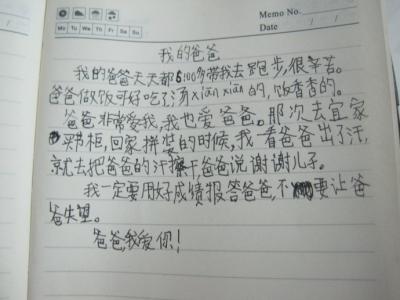 Memo No.
Mo Tu We Th Fr Sa Su
Date / /
我的爸爸
我的爸爸天天都6:00多带我去跑步,很辛苦。
爸爸做饭可好吃了,汤xiān xiān的,饭香香的。
爸爸非常爱我,我也爱爸爸。那次去宜家
买书柜,回家拼装的时候,我一看爸爸出了汗,
就去把爸爸的汗擦干,爸爸说谢谢儿子。
我一定要用好成绩报答爸爸,不要让爸
爸失望。
爸爸,我爱你!